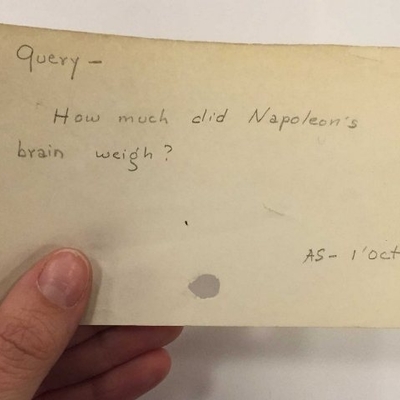 Query –
How much did Napoleon's
brain weigh?
AS – 1 'Oct